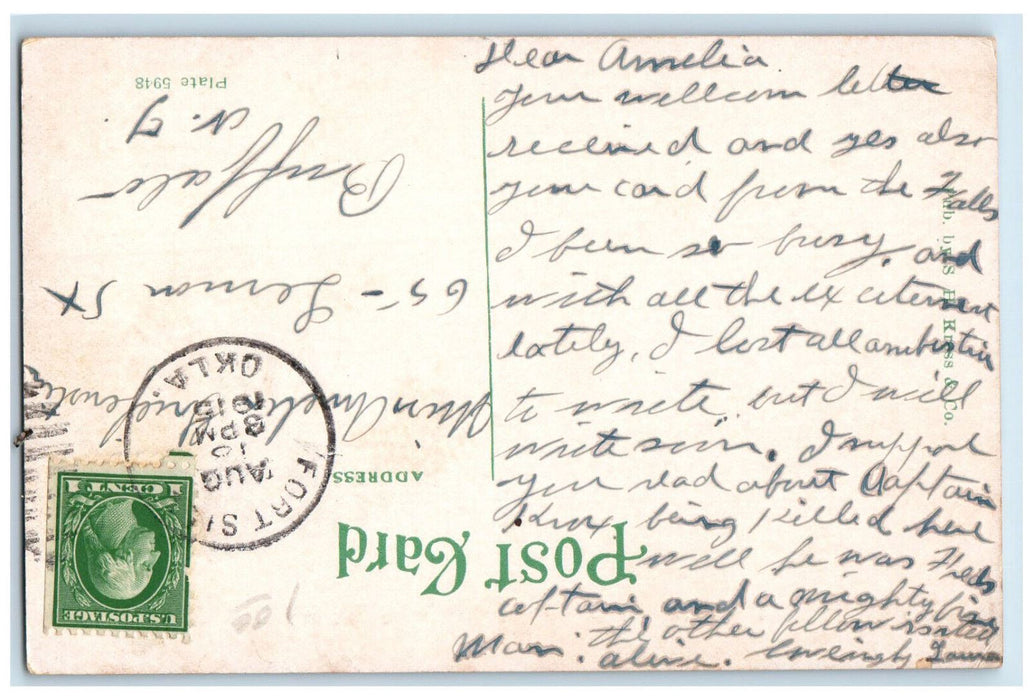 Dear Amelia
Your wellcom letter
received and yes also
your card from the Falls
I been so busy, and
with all the excitement
lately, I lost all ambition
to write, but I will
write soon. I suppose
you read about Captain
Knox being killed here
well he was Freds
captain and a mighty fine
Man. the other fellow
alive. Lovingly
POST CARD
ADDRESS
Miss Amelia
65- Lemon St
Buffalo
N. Y
Plate 5948
Pub. by S. H. Kress & Co.
FORT SILL
AUG
8 PM
1915
OKLA.
U.S. POSTAGE
1 CENT 1
100